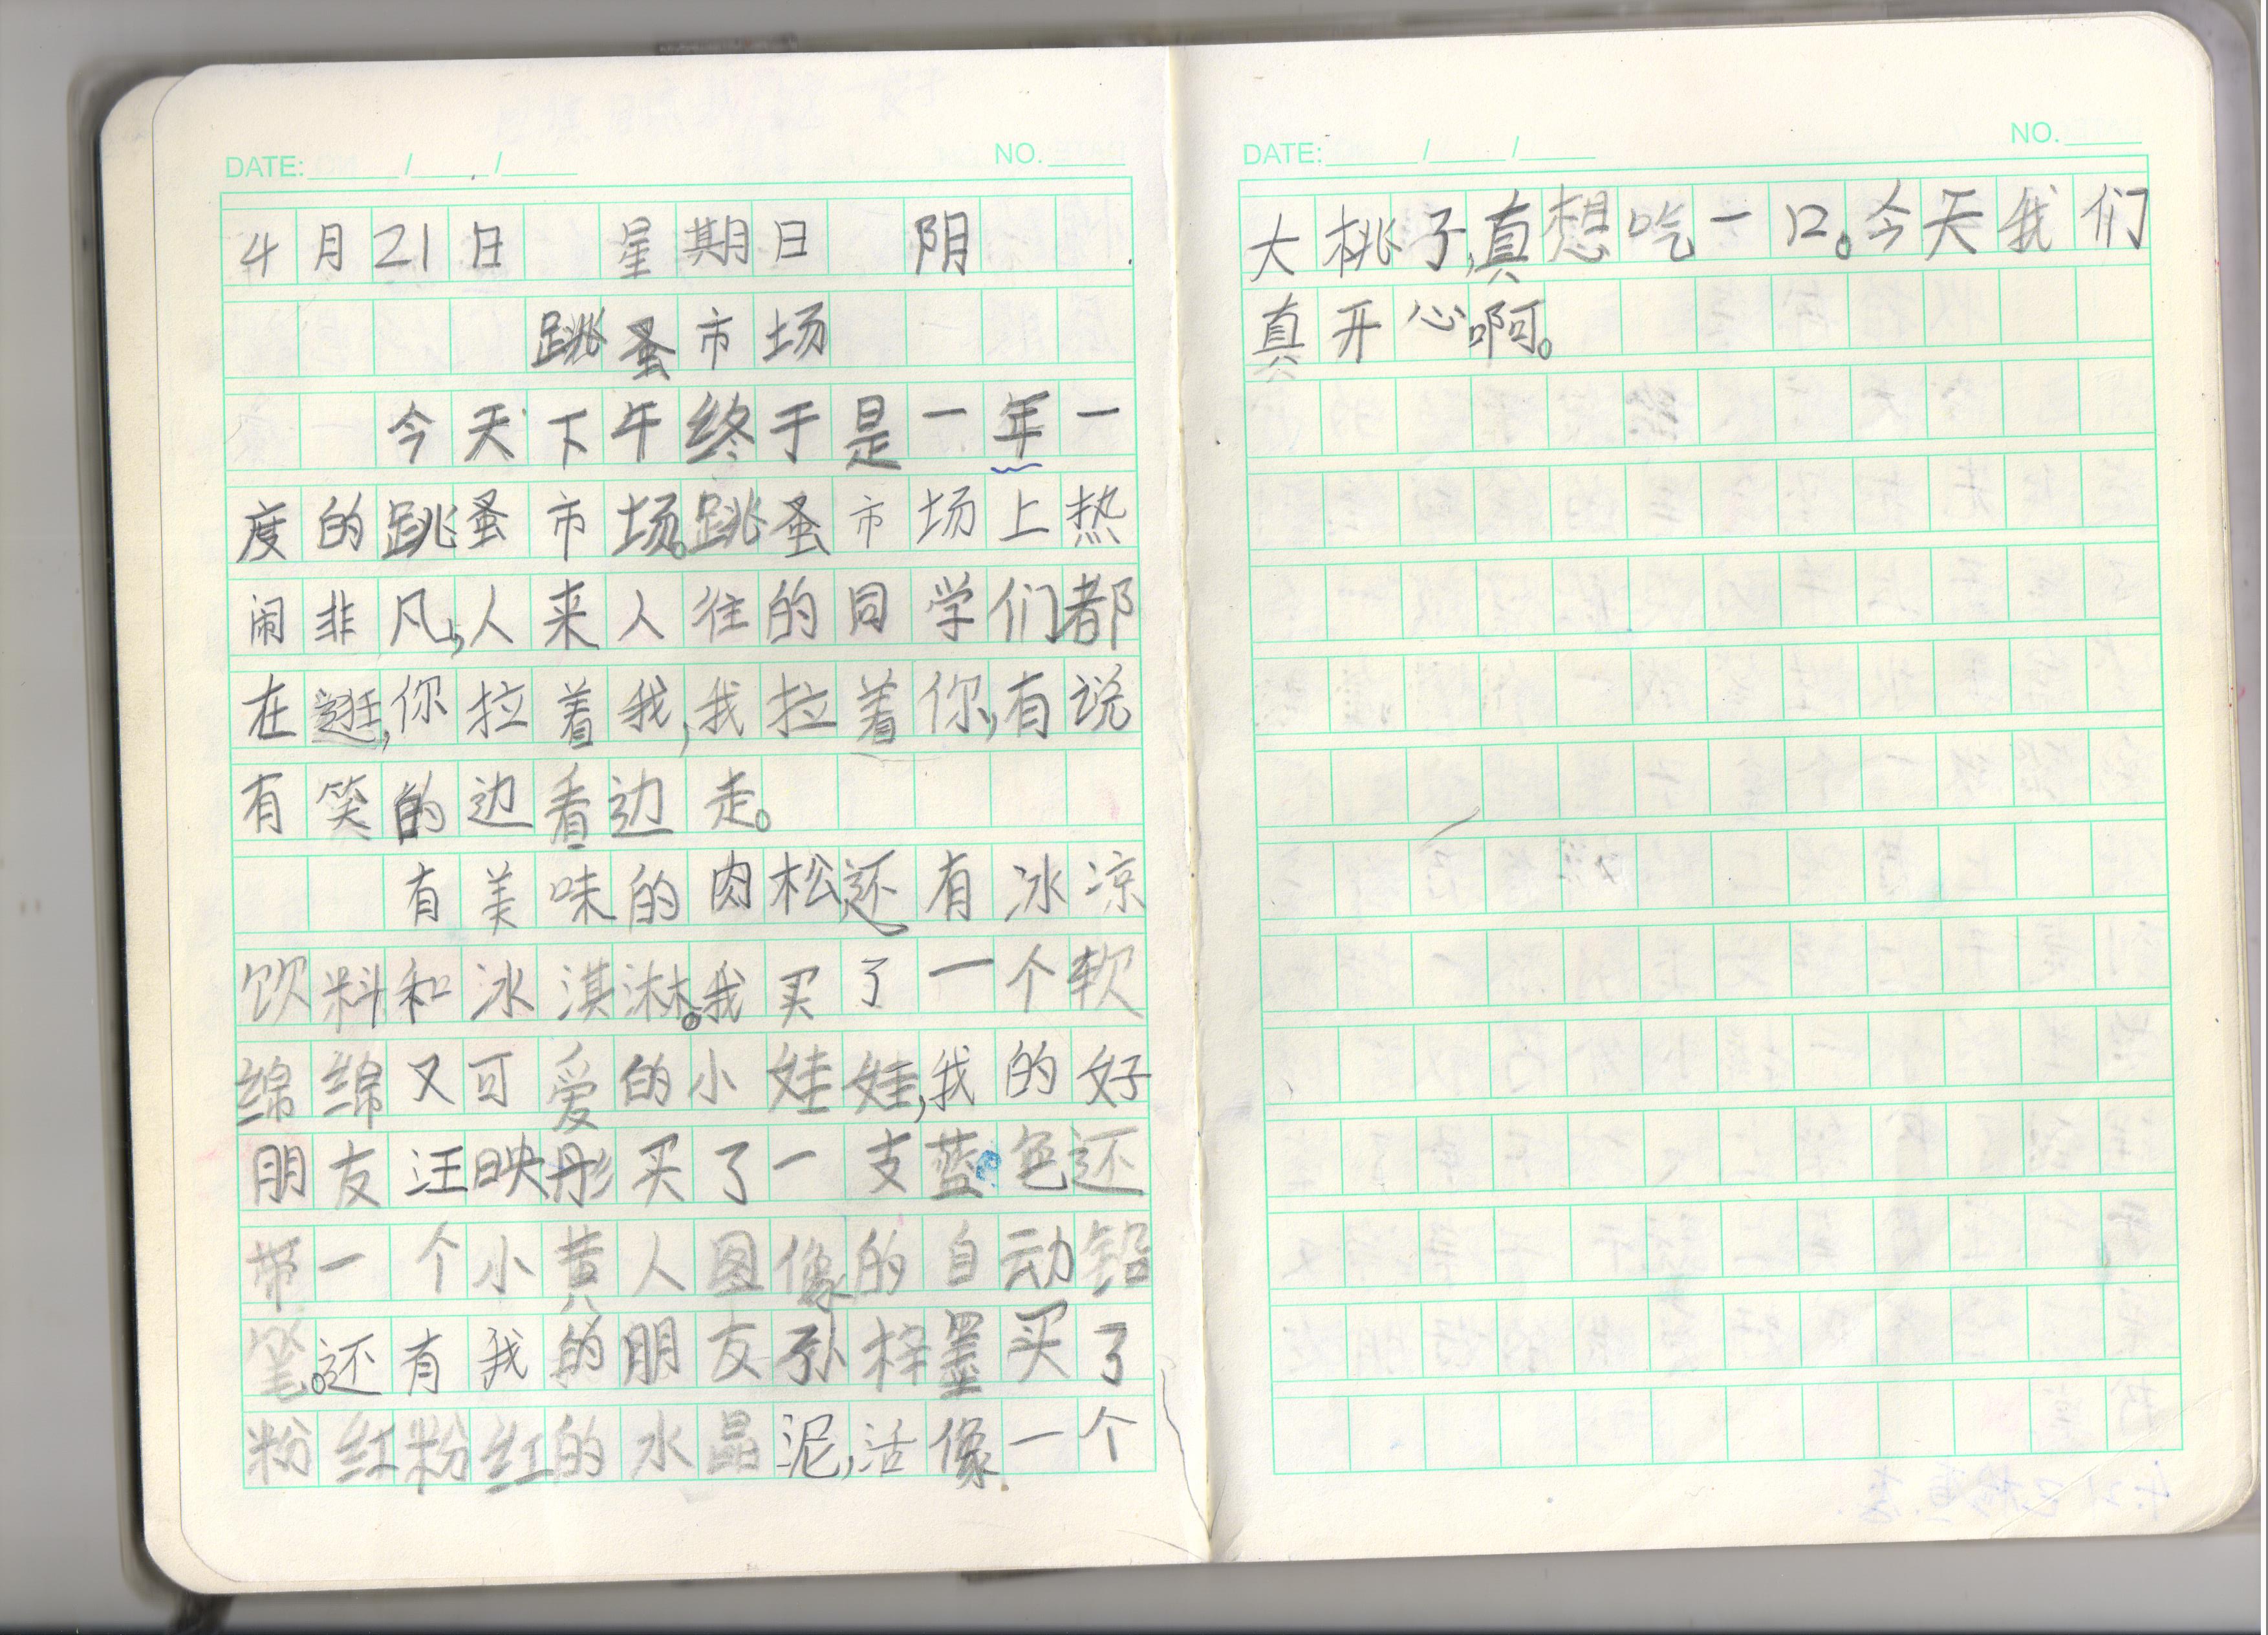 DATE: / /
NO.
4月21日 星期日 阴
跳蚤市场
今天下午终于是一年一
度的跳蚤市场。跳蚤市场上热
闹非凡,人来人往的同学们都
在逛,你拉着我,我拉着你,有说
有笑的边看边走。
有美味的肉松还有冰凉
饮料和冰淇淋。我买了一个软
绵绵又可爱的小娃娃,我的好
朋友汪映彤买了一支蓝色还
带一个小黄人图像的自动铅
笔。还有我的朋友孙梓墨买了
粉红粉红的水晶泥,活像一个
DATE: / /
NO.
大桃子,真想吃一口。今天我们
真开心啊。